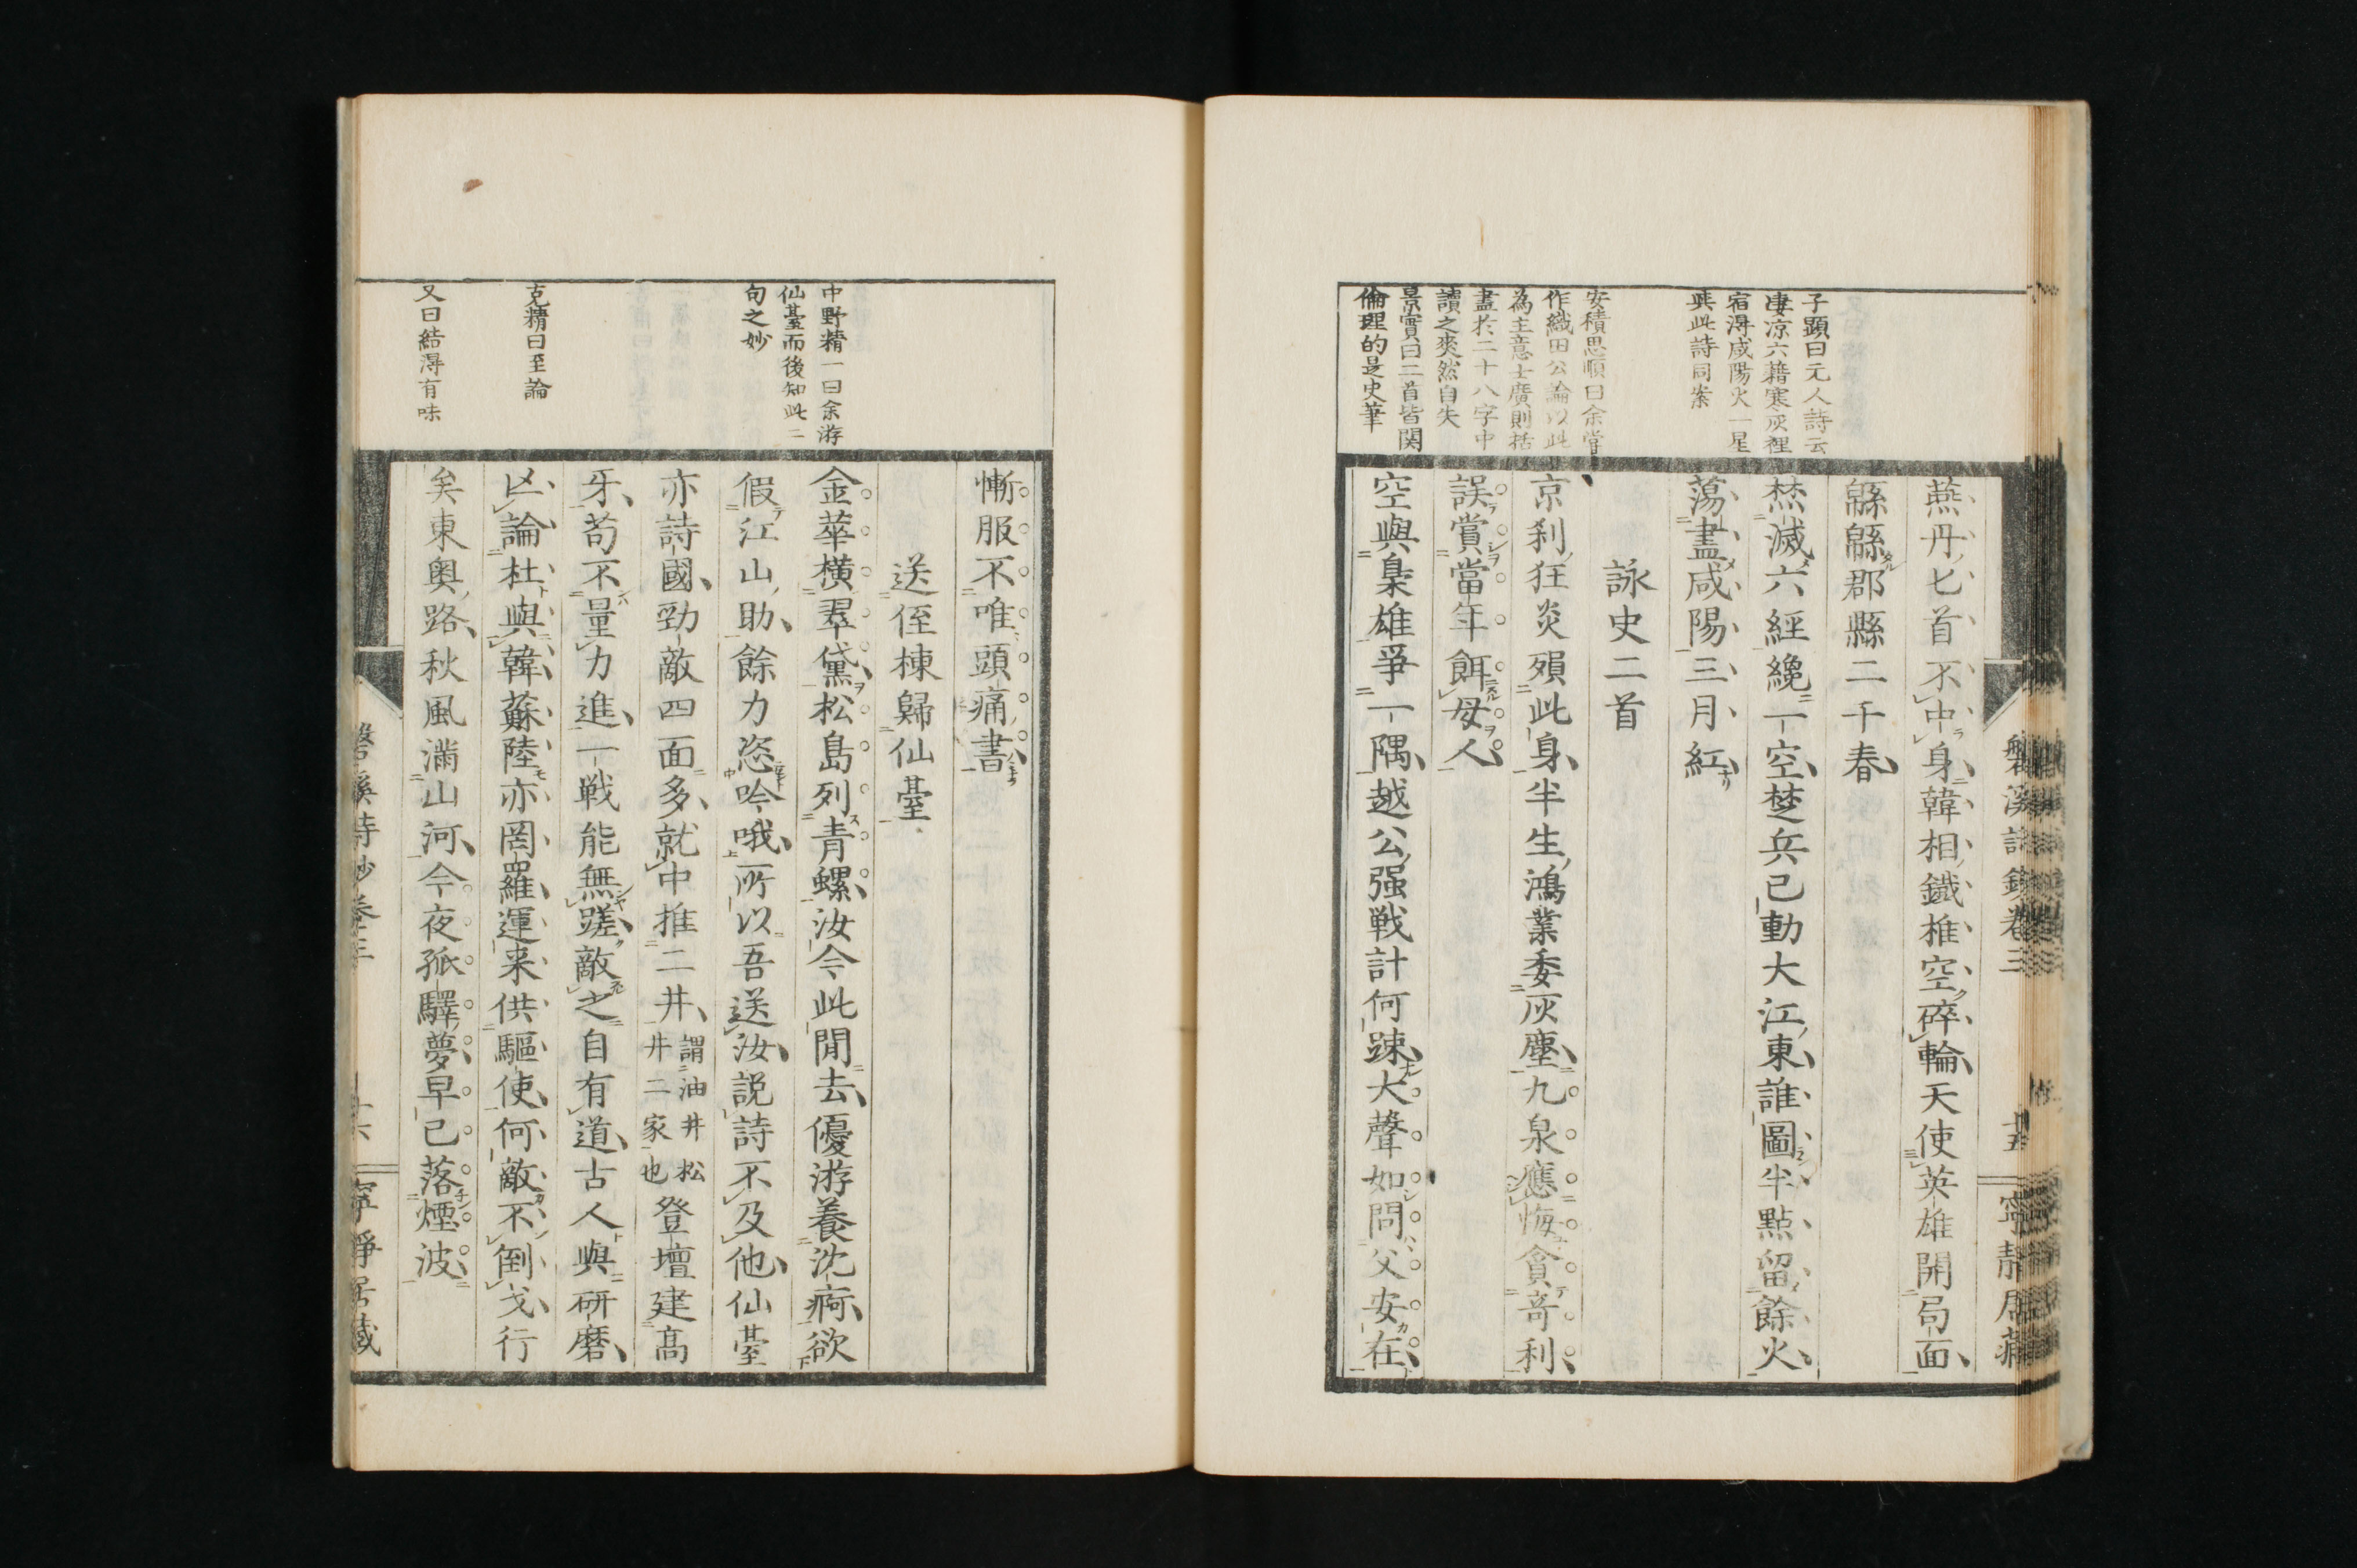 子顕曰元人詩云
凄凉六籍寒灰裡
宿得咸陽火一星
與此詩同案
安積思順曰余嘗
作織田公論以此
為主意士廣則括
盡於二十八字中
讀之爽然自失
景實曰二首皆関
倫理的是史筆
磐溪詩鈔卷三
十五
寧靜居藏
燕丹匕首不中身韓相鐵椎空碎輪天使英雄開局面
緜緜郡縣二千春
焚滅六經纔一空楚兵已動大江東誰圖半點留餘火
蕩盡咸陽三月紅
詠史二首
京刹狂炎殞此身半生鴻業委灰塵九泉應悔貪奇利
誤賞當年餌母人
空與梟雄爭一隅越公强戦計何踈大聲如問父安在
中野精一曰余游
仙臺而後知此二
句之妙
克精曰至論
又曰結得有味
慚服不唯頭痛書
送侄棟歸仙臺
金華橫翠黛松島列青螺汝今此閒去優游養沈痾欲
假江山助餘力恣吟哦所以吾送汝説詩不及他仙臺
亦詩國勁敵四面多就中推二井謂油井松井二家也登壇建高
牙苟不量力進一戦能無蹉敵之自有道古人與研磨
凶論杜與韓蘇陸亦罔羅運来供驅使何敵不倒戈行
矣東奥路秋風滿山河今夜孤驛夢早已落煙波
磐溪詩鈔卷三
十六
寧靜居藏